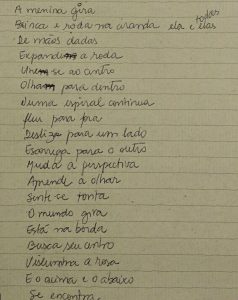 A menina gira
Brinca e roda na ciranda ela e todas elas
De mãos dadas
Expande a roda
Une-se ao centro
Olha para dentro
Numa espiral contínua
flui para fora
Desliza para um lado
Escorrega para o outro
Muda a perspectiva
Aprende a olhar
Sente-se tonta
O mundo gira
Está na borda
Busca seu centro
Vislumbra a rosa
E o acima e o abaixo
Se encontra